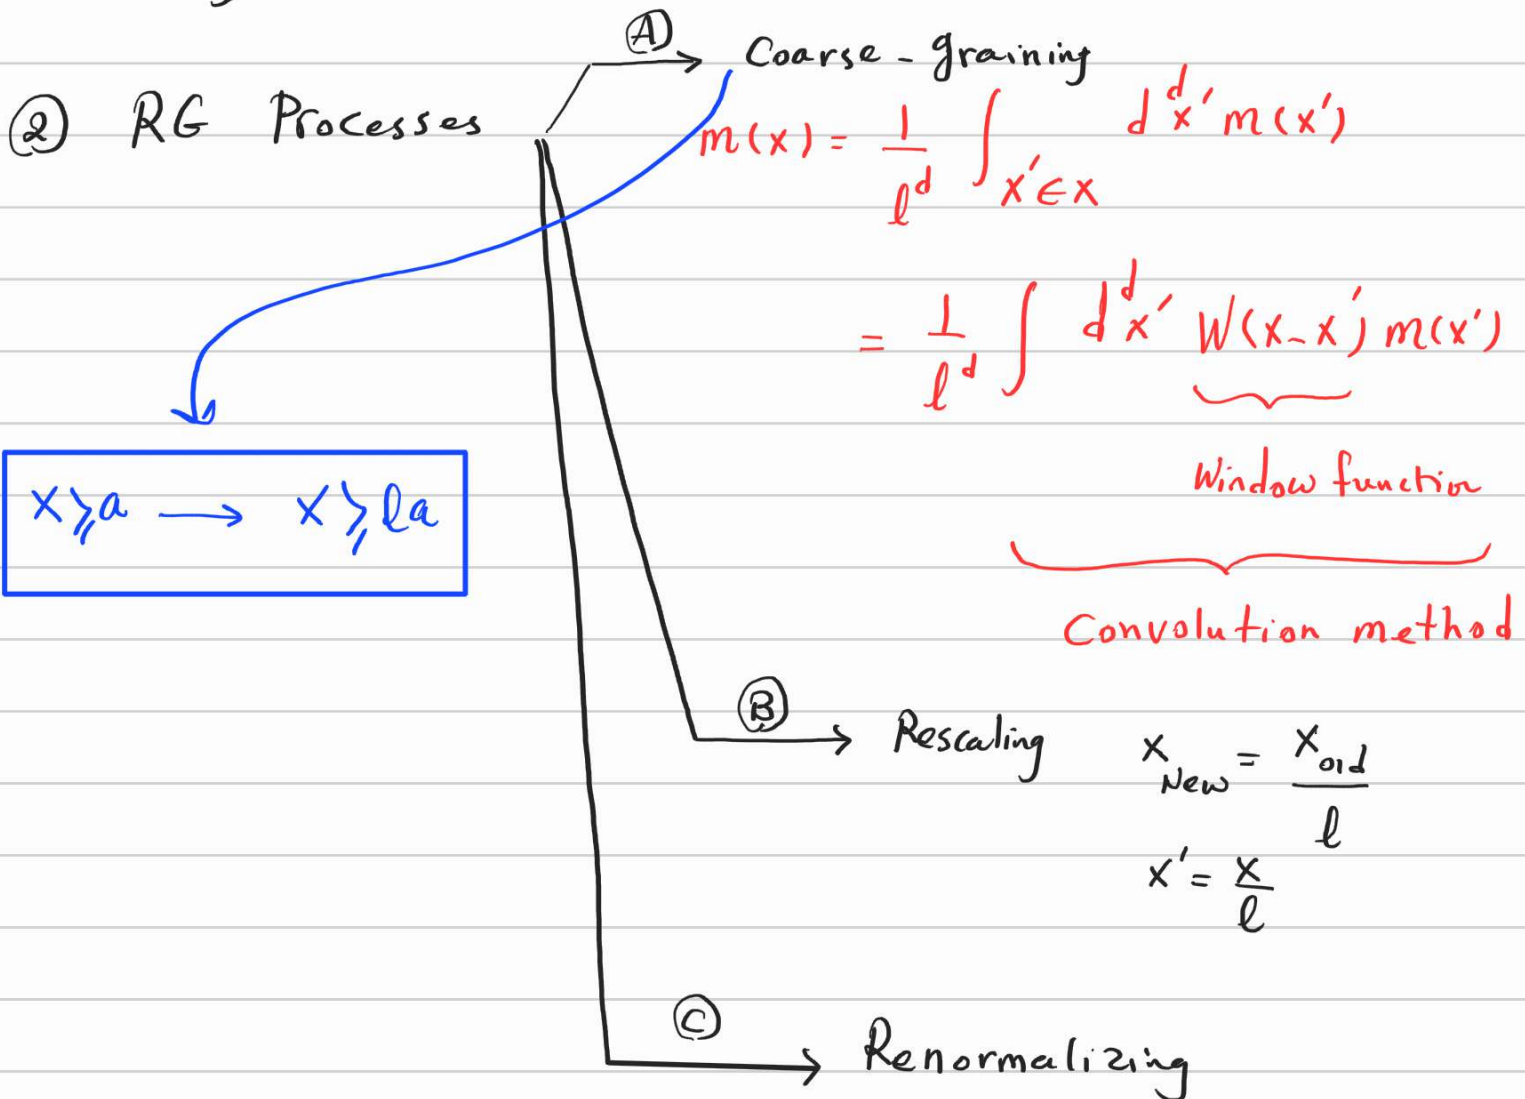 ② RG Processes
Ⓐ → Coarse - graining
m(x) = 1/l^d ∫_{x'∈x} d^d x' m(x')
= 1/l^d ∫ d^d x' W(x-x') m(x')
Window function
Convolution method
x ⩾ a → x ⩾ la
Ⓑ → Rescaling x_New = x_old/l
x' = x/l
Ⓒ → Renormalizing